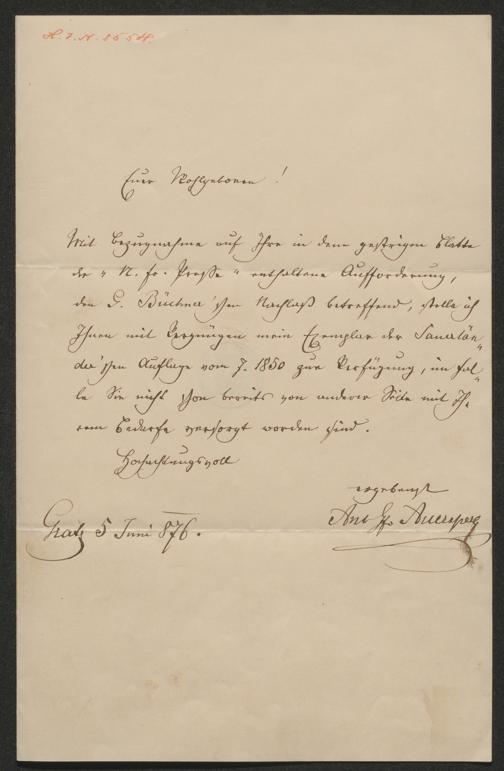 H. I. N. 8554.
Euer Wohlgeboren!
Mit Bezugnahme auf Ihre in dem gestrigen Blatte
der „N. fr. Presse" enthaltene Aufforderung,
den G. Büchner'schen Nachlaß betreffend, stelle ich
Ihnen mit Vergnügen mein Exemplar der Sauerlän„
der'schen Auflage vom J. 1850 zur Verfügung, im Fal„
le Sie nicht schon bereits von anderer Seite mit Ih„
rem Bedarfe versorgt worden sind.
Hochachtungsvoll
ergebenst
Ant Gf. Auersperg
Gratz 5 Juni 876.